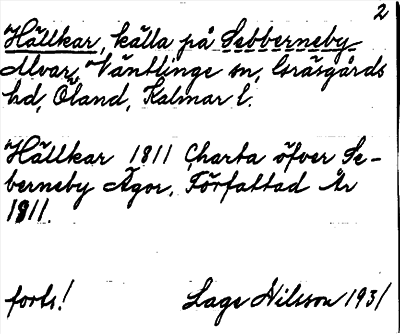 2
Hällkar, källa på Sebberneby
Alvar, Ventlinge sn, Gräsgårds
hd, Öland, Kalmar l.
Hällkar 1811 Charta öfver Se-
berneby Ägor. Författad År
1811.
forts! Lage Nilsson 1931